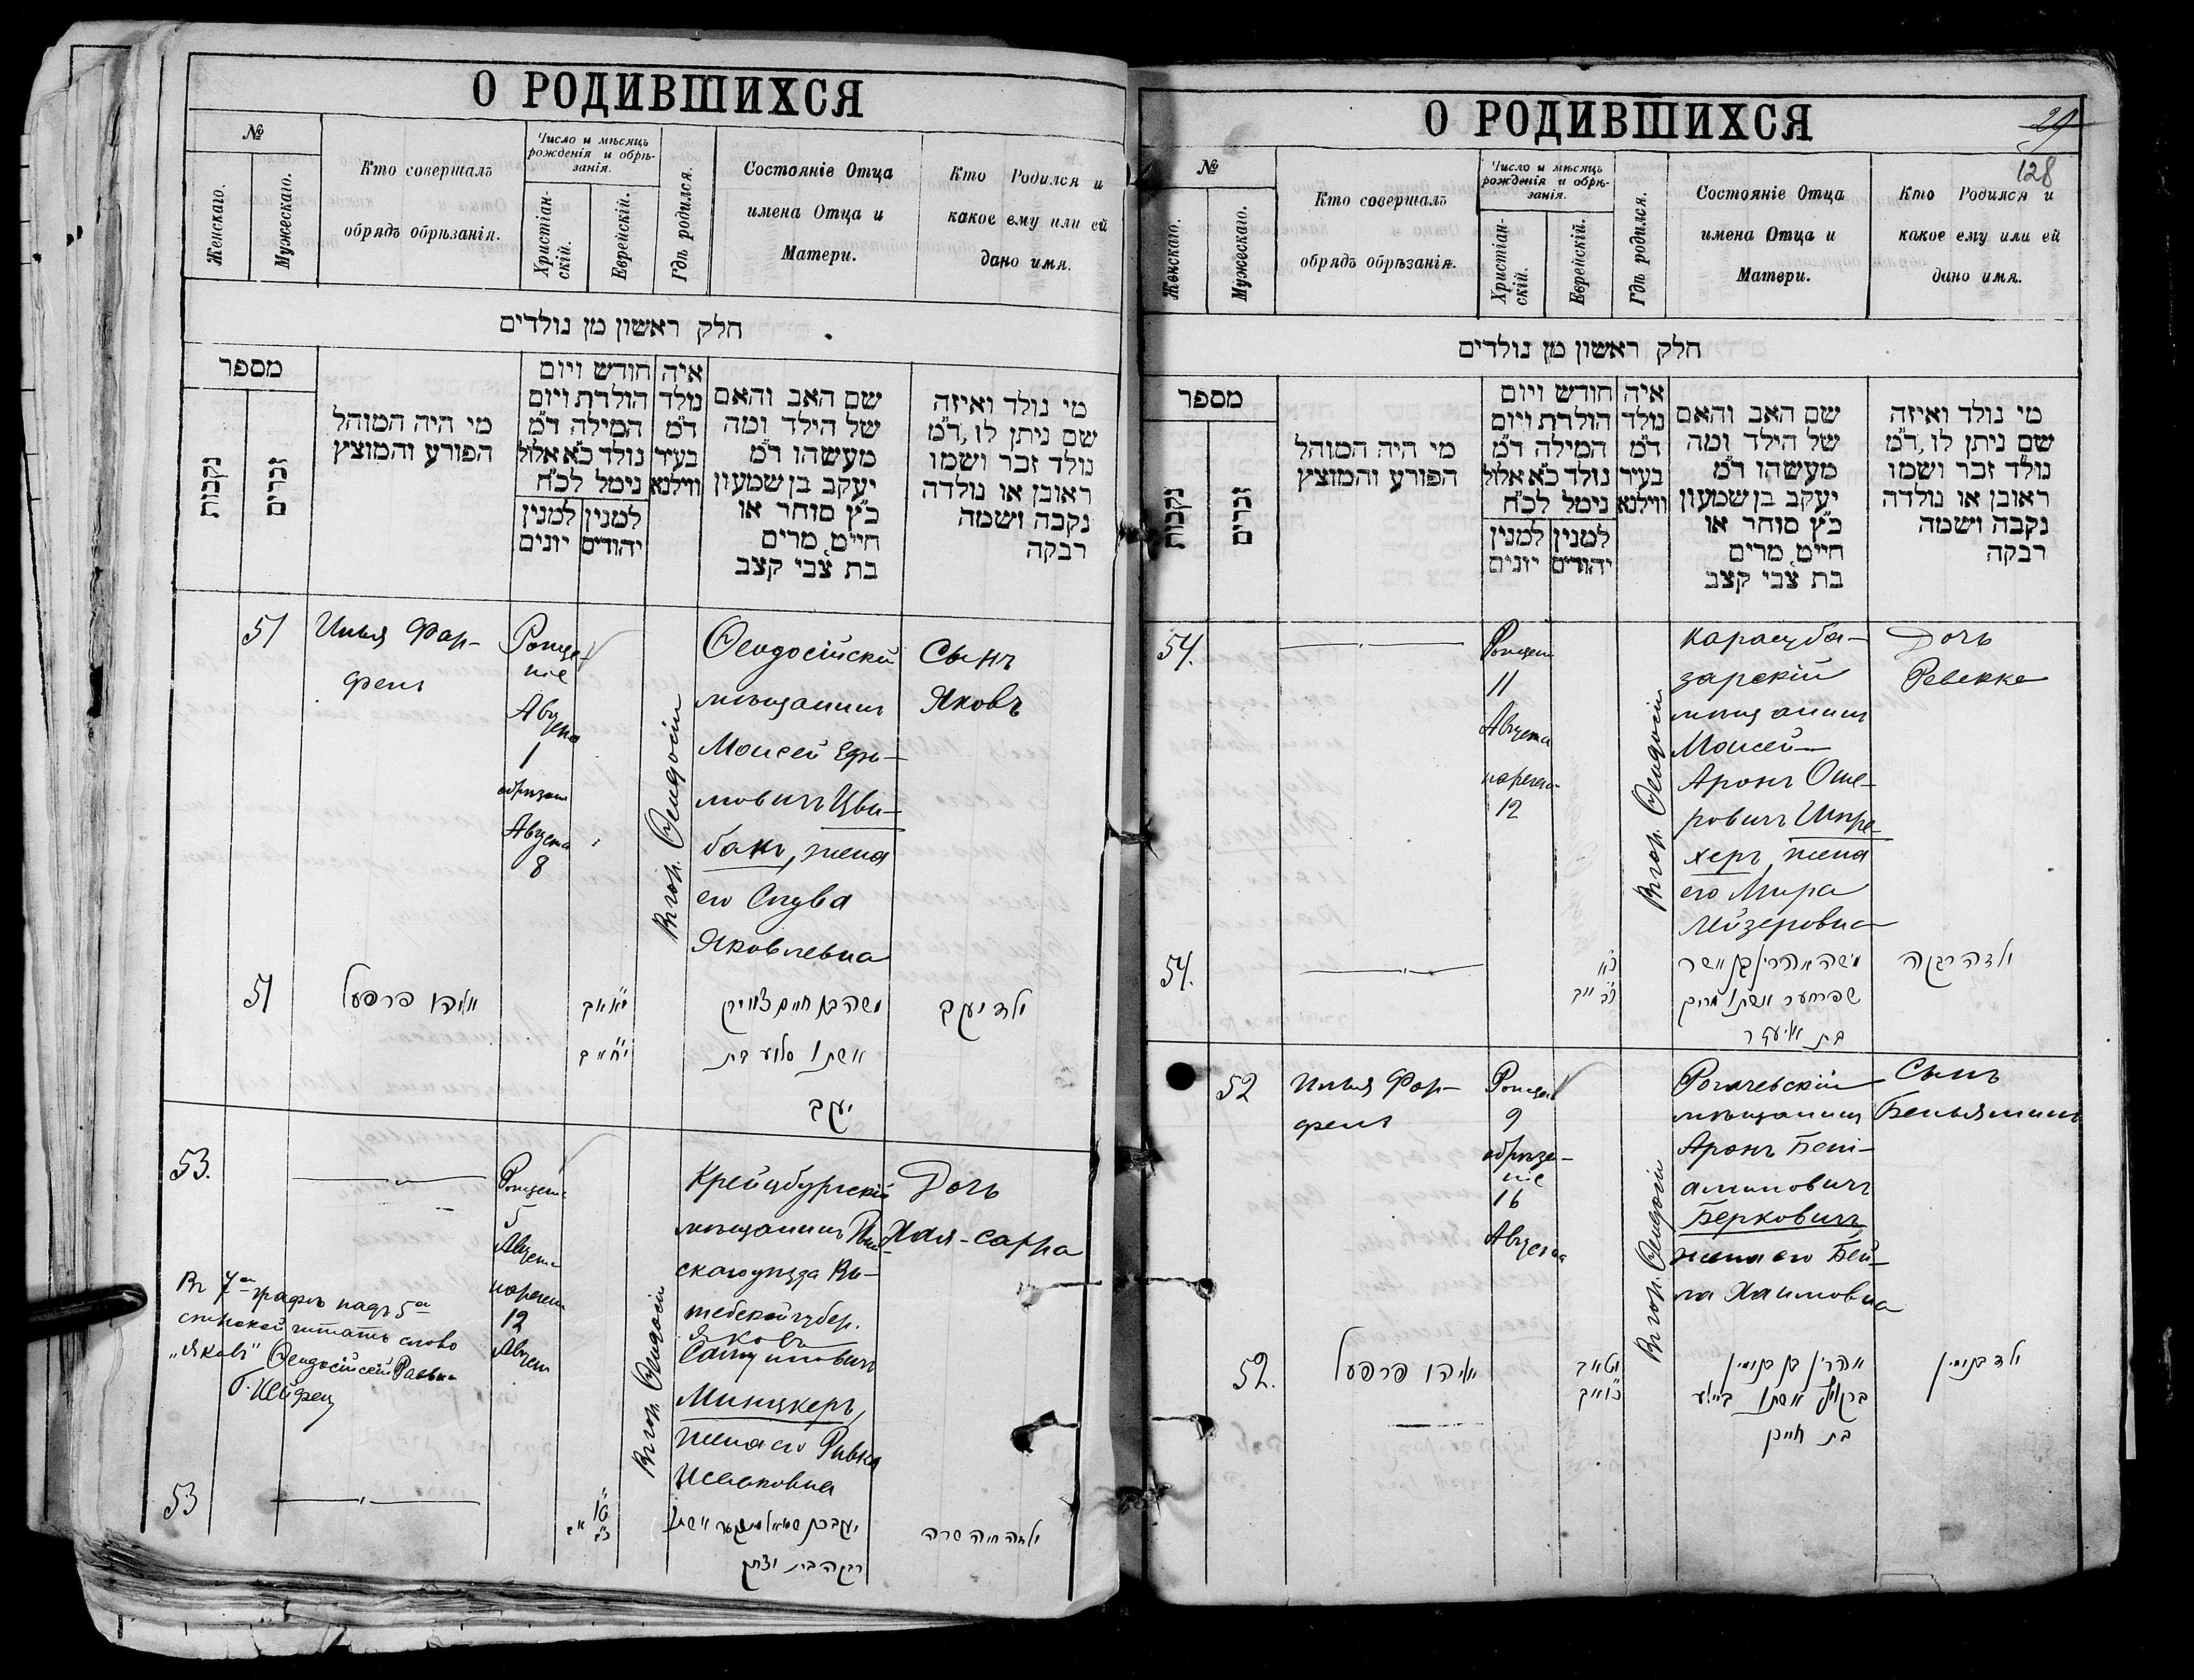 О РОДИВШИХСЯ
№
Женскаго.
Мужескаго.
Кто совершалъ
обрядъ обрѣзанія.
Число и мѣсяцъ
рожденія и обрѣ-
занія.
Христіан-
скій.
Еврейскій.
Гдѣ родился.
Состояніе Отца
имена Отца и
Матери.
Кто Родился и
какое ему или ей
дано имя.
חלק ראשון מן נולדים
מספר
נקבות
זכרים
מי היה המוהל
הפורע והמוצץ
חודש ויום
הולדת ויום
המילה ד"מ
נולד כ"א אלול
נימל לכ"ח
למנין
יהודים
למנין
יונים
איה
נולד
ד"מ
בעיר
ווילנא
שם האב והאם
של הילד ומה
מעשהו ד"מ
יעקב בן שמעון
כ"ץ סוחר או
חיי"ט, מרים
בת צבי קצב
מי נולד ואיזה
שם ניתן לו, ד"מ
נולד זכר ושמו
ראובן או נולדה
נקבה ושמה
רבקה
51
Илья Фар-
фель
Рожде-
ніе
Авгу
ста
1
обрѣзан
Августа
8
Въ гор. Ѳеодосіи
Ѳеодосійскій
мѣщанинъ
Моисей Ефи-
мовичъ Цви-
бакъ, жена
его Слува
Яковлевна
Сынъ
Яковъ
51
אליהו פרפעל
י"א אב
י"ח אב
משה בן חיים צוויבק
אשתו סלווע בת
יעקב
ילד יעקב
53.
Рожден
5
Август
наречен
12
Август
Въ гор. Ѳеодосіи
Крейцбургскій
мѣщанинъ Дви-
скаго уѣзда Ви-
тебской губер.
Яковъ
Самуиловичъ
Минцкеръ,
жена его Ривка
Исааковна
Дочь
Хая-Сарра
Въ 7ой графѣ надъ 5ой
строкой читать слово
„Яковъ" Ѳеодосійскій Раввин
53
ט"ו
כ"ב אב
יעקב בן שמואל מינצקער אשתו
רבקה בת יצחק
ילדה חיה שרה
О РОДИВШИХСЯ
29
128
№
Женскаго.
Мужескаго.
Кто совершалъ
обрядъ обрѣзанія.
Число и мѣсяцъ
рожденія и обрѣ-
занія.
Христіан-
скій.
Еврейскій.
Гдѣ родился.
Состояніе Отца
имена Отца и
Матери.
Кто Родился и
какое ему или ей
дано имя.
חלק ראשון מן נולדים
מספר
נקבות
זכרים
מי היה המוהל
הפורע והמוצץ
חודש ויום
הולדת ויום
המילה ד"מ
נולד כ"א אלול
נימל לכ"ח
למנין
יהודים
למנין
יונים
איה
נולד
ד"מ
בעיר
ווילנא
שם האב והאם
של הילד ומה
מעשהו ד"מ
יעקב בן שמעון
כ"ץ סוחר או
חיי"ט, מרים
בת צבי קצב
מי נולד ואיזה
שם ניתן לו, ד"מ
נולד זכר ושמו
ראובן או נולדה
נקבה ושמה
רבקה
54.
Рожден
11
Августа
наречен
12
Въ гор. Ѳеодосіи
Карасуба-
зарскій
мѣщанинъ
Моисей-
Аронъ Оше-
ровичъ Шпре-
херъ, жена
его Мира
Лейзеровна
Дочь
Ревекка
54.
כ"א
כ"ב אב
משה אהרין בן אשר
שפרעכער אשתו מרים
בת אליעזר
ילדה רבקה
52
Илья Фар-
фель
Рожден
9
обрѣза-
ніе
16
Августа
Въ гор. Ѳеодосіи
Рогачевскій
мѣщанинъ
Аронъ Бені-
аминовичъ
Берковичъ,
жена его Бей-
ла Хаимовна
Сынъ
Беньяминъ
52.
אליהו פרפעל
י"ט אב
כ"ו אב
אהרין בן בנימין
ברקוויץ אשתו ביילע
בת חיים
ילד בנימין